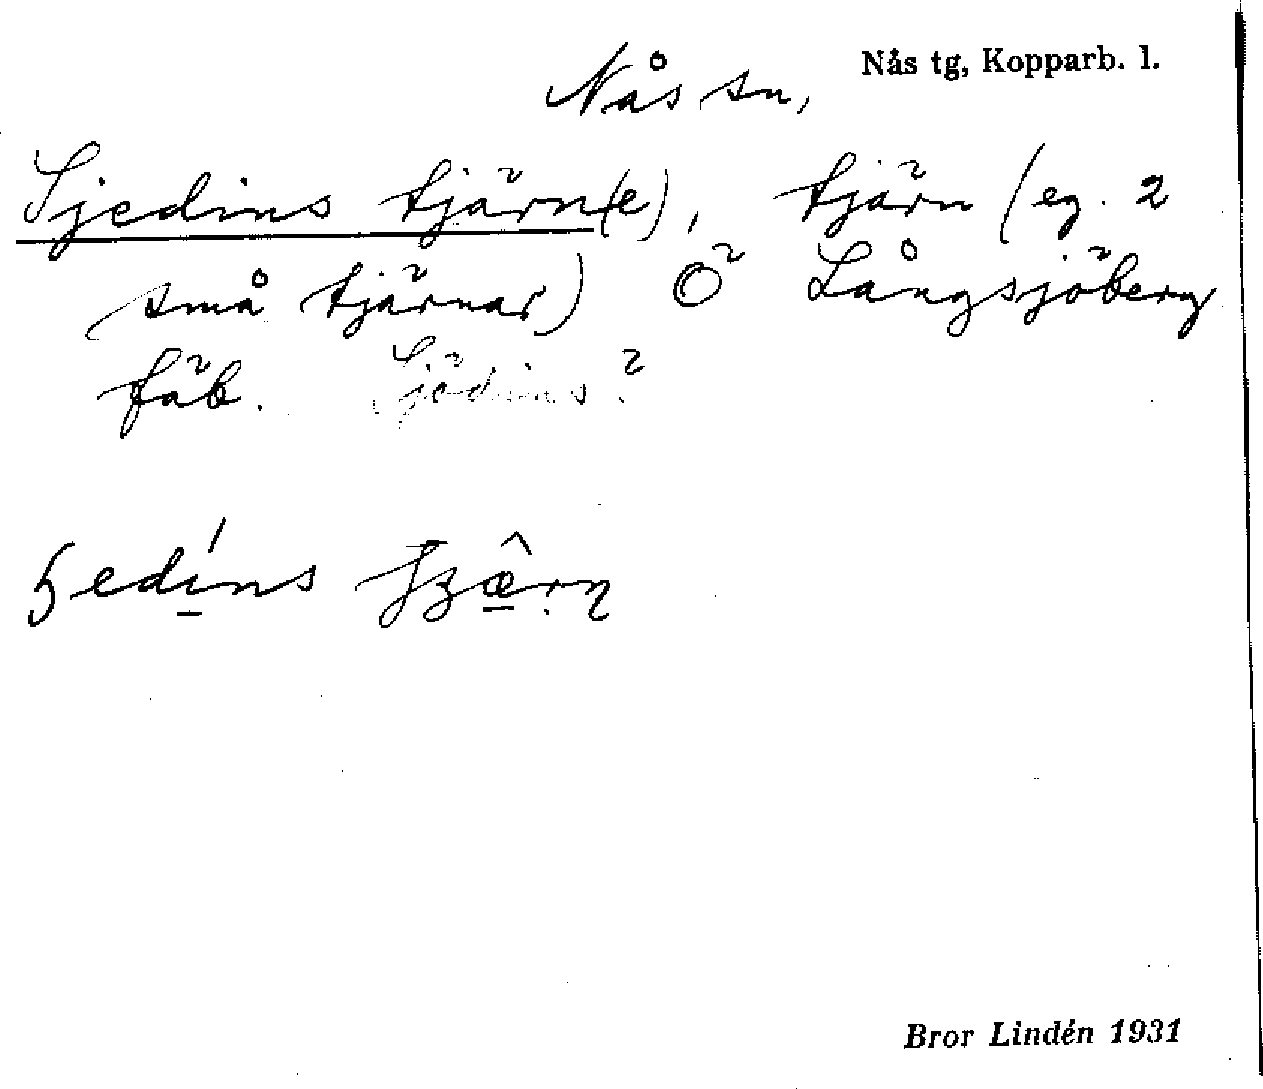 Nås tg, Kopparb. l.
Nås sn,
Sjedins tjärn(e), tjärn (eg. 2
små tjärnar) Ö Långsjöberg
fäb. Sjödins?
Bror Lindén 1931